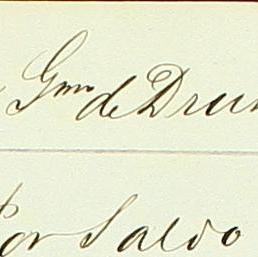 Gmo de Drum
Por Saldo